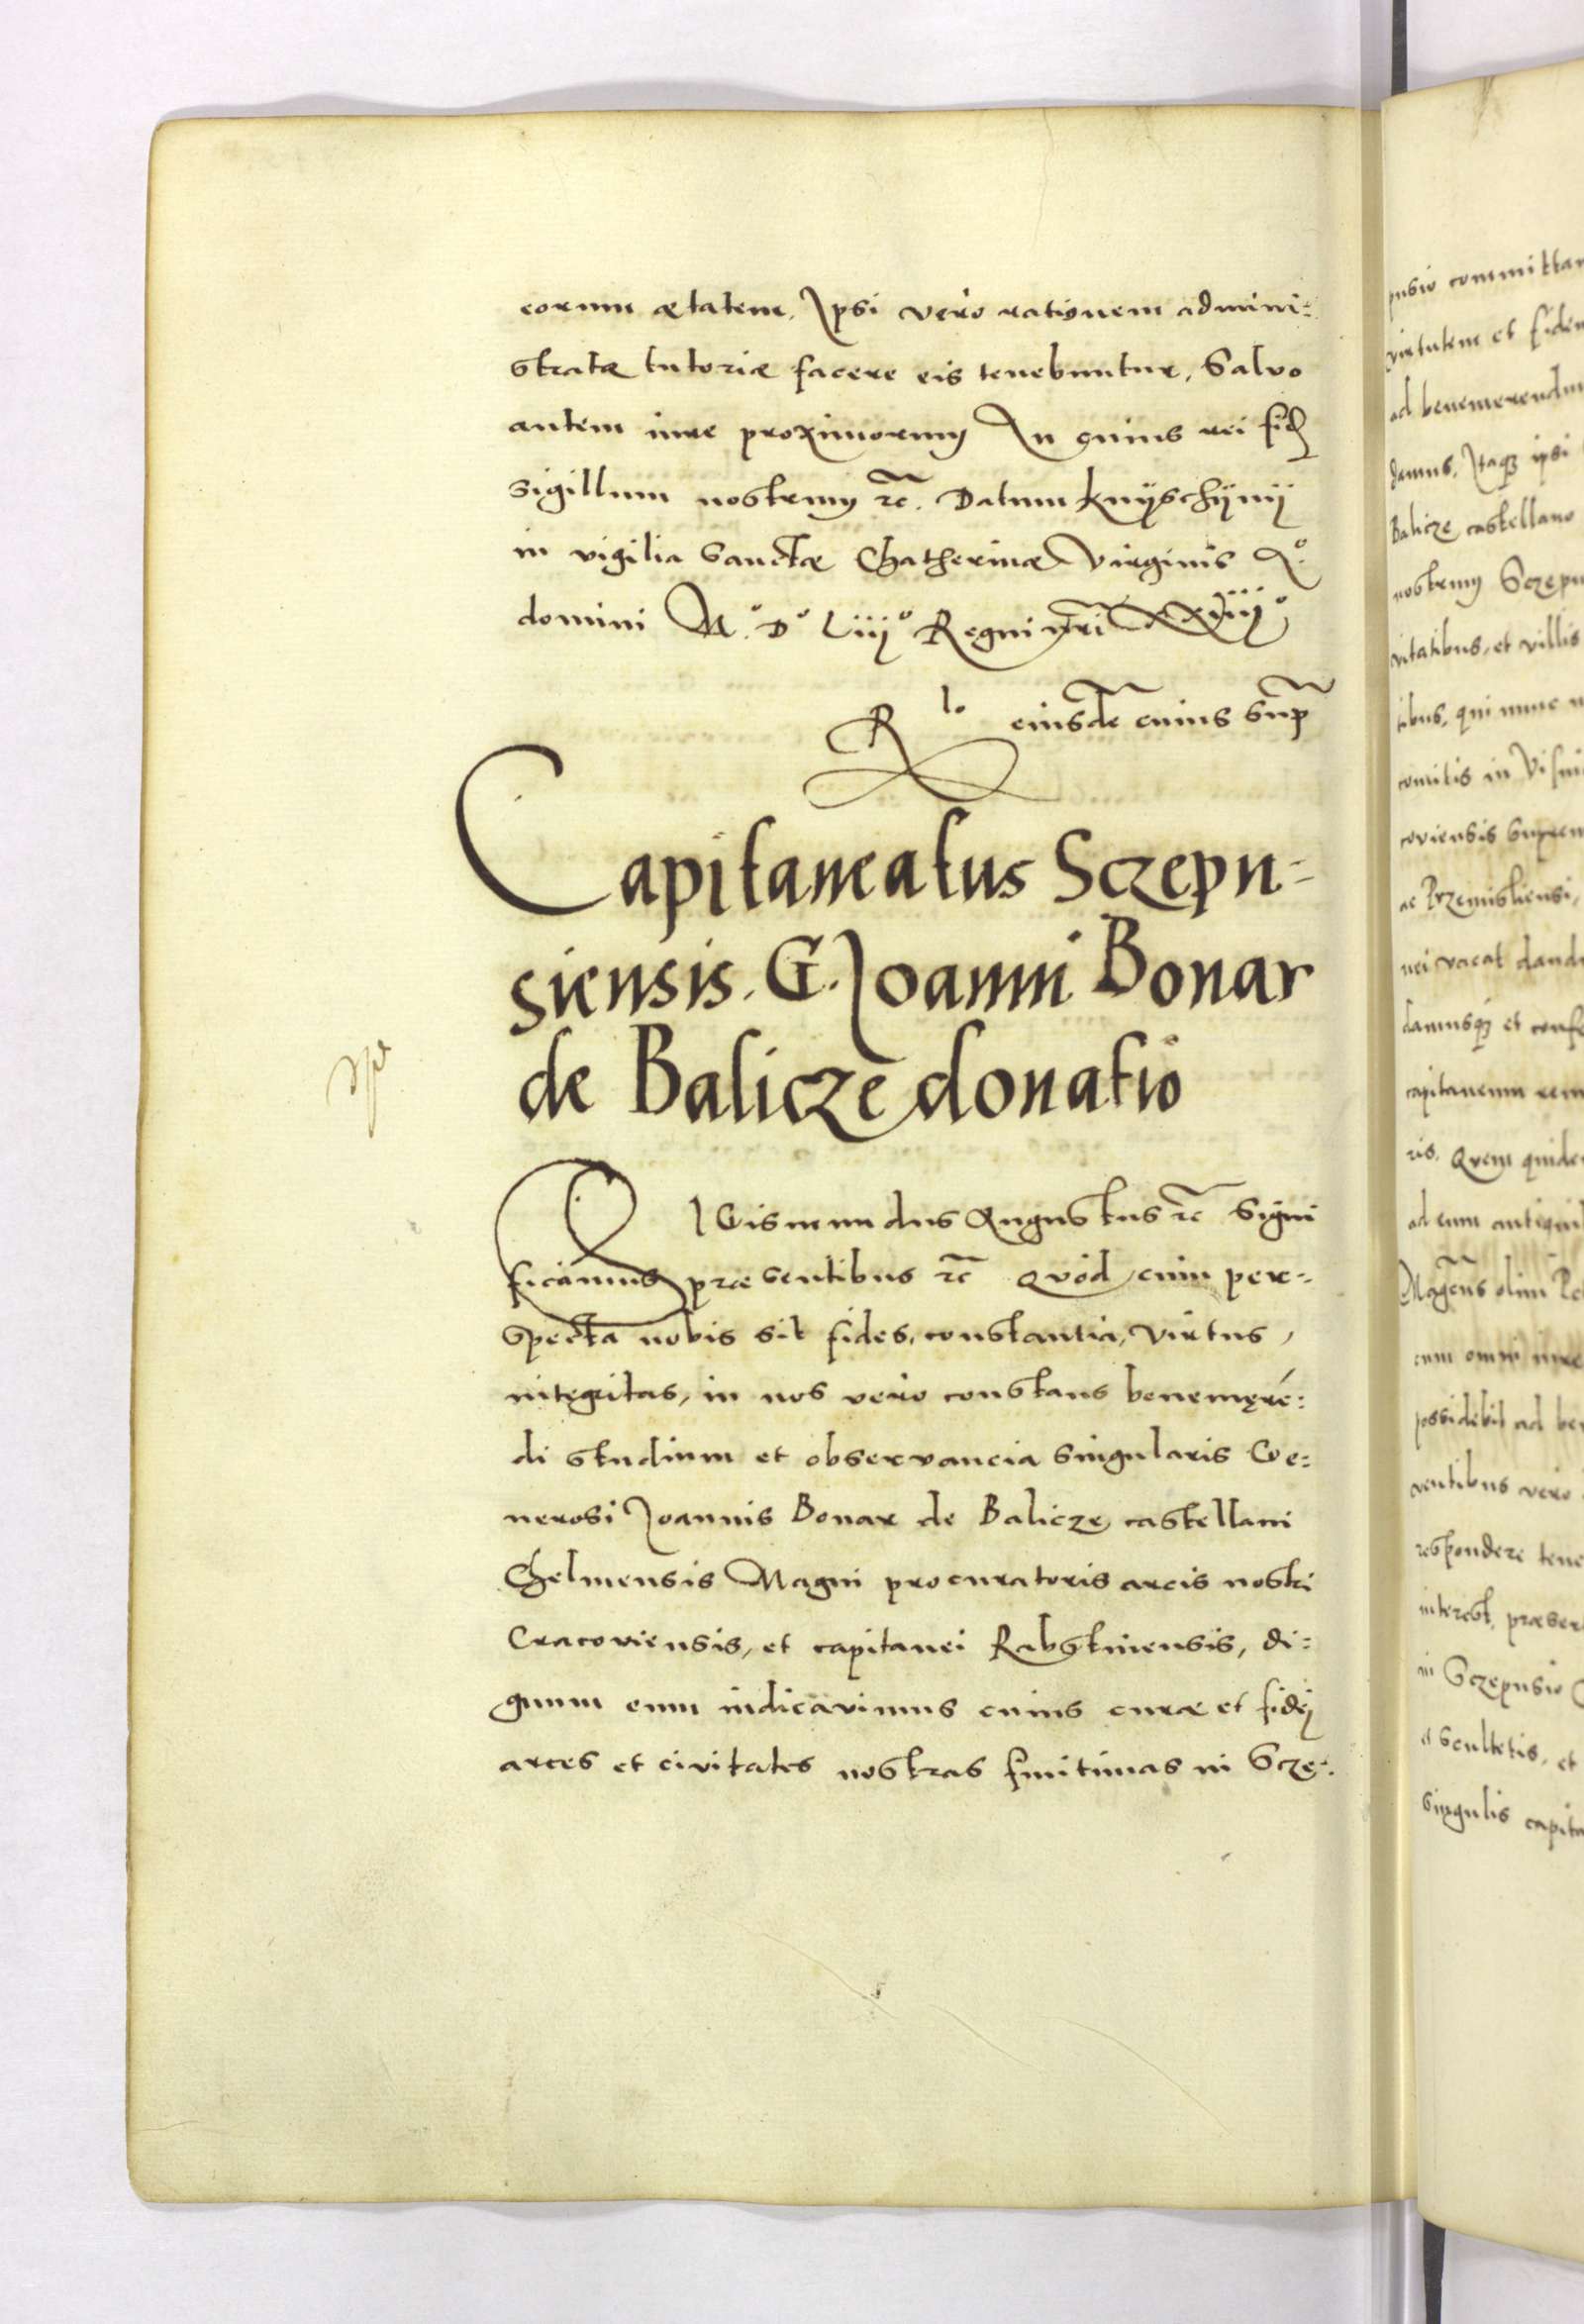 eorum ætatem. Ipsi vero rationem admini:
stratæ tutoriæ facere eis tenebuntur, Salvo
autem iure proximorum In cuius rei fid
sigillum nostrum rc̃. Datum Knÿschÿnÿ
in vigilia Sanctæ Chatherinæ Virginis A.º
domini M.º Dº Liijº Regni nr̃i XXiiijº
R lo eiusdẽ cuius sup̃
Capitaneatus Sczepu-
siensis. G. Joanni Bonar
de Balicze donatio
SIGismundus Augustus rc̃ Signi
ficamus præsentibus rc̃ Quod cum per-
specta nobis sit fides, constantia, virtus,
integritas, in nos vero constans benemere:
di studium et observancia singularis Ge:
nerosi Joannis Bonar de Balicze castellani
Chelmensis Magni procuratoris arcis nostri
Cracoviensis, et capitanei Rabstinensis, di:
gnum eum iudicavimus cuius curæ et fidej
arces et civitates nostras finitimas in Scze:
pusio committam
virtutem et fidem
ad benemerendum
damus, Itaqȝ ipsi
Balicze castellano
nostrum Sczepu
vitatibus, et villis
tibus, qui nunc
comitis in Visni
coviensis suprem
ac Przemisliensi,
nei vacat dand
damusqȝ et confe
capitaneum rem
ris. Quem quide
ad eum antiqui
Magcus olim Pe
cum omni iure
possidebit ad be
ventibus vero
respondere tene
interest, præser
in Sczepusio
a scultetis, et
singulis capita